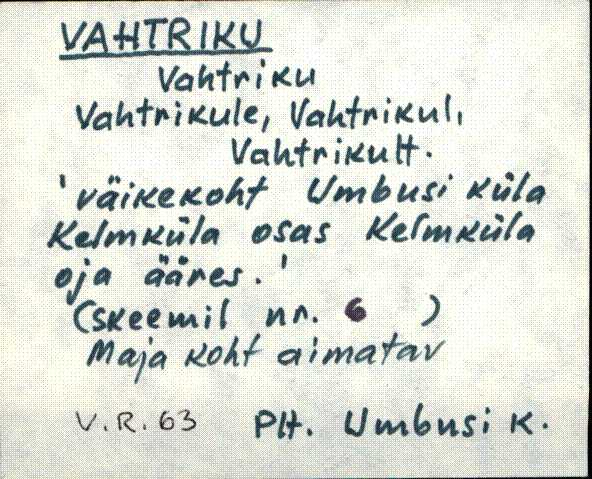 VAHTRIKU
Vahtriku
Vahtrikule, Vahtrikul,
Vahtrikult.
'väikekoht Umbusi küla
Kelmküla osas Kelmküla
oja ääres.'
(skeemil nr. 6 )
Maja koht aimatav
V.R. 63 Plt. Umbusi k.